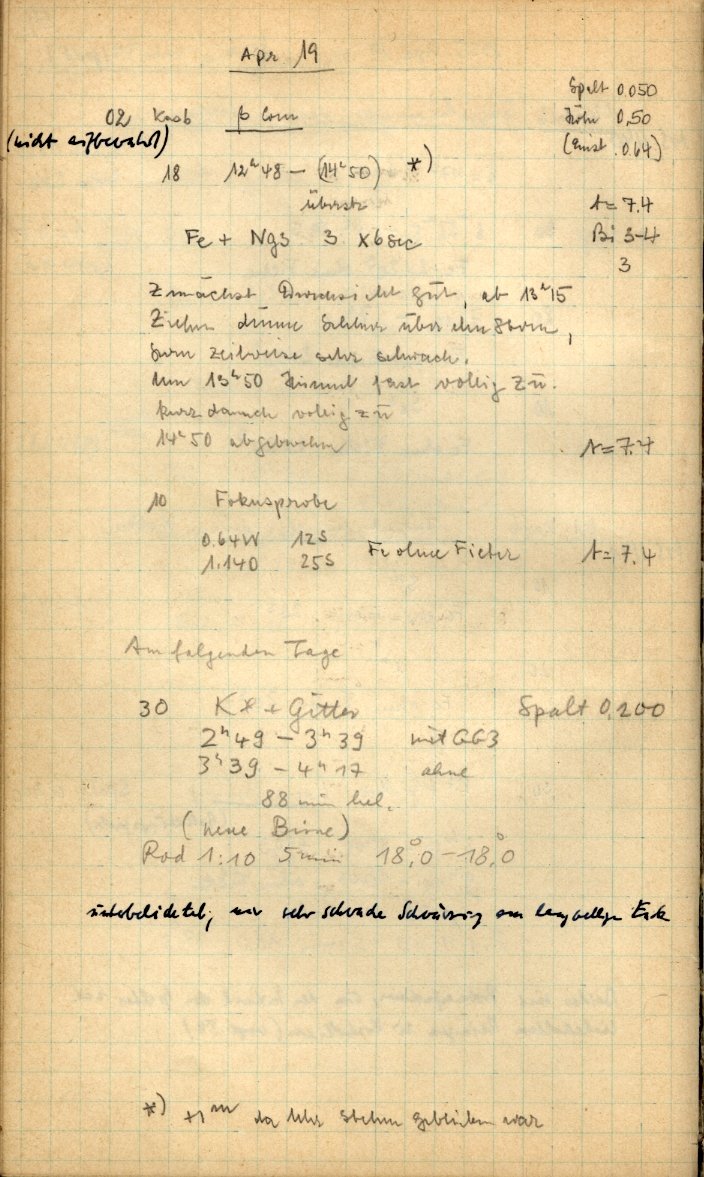 Apr 19
Spalt 0,050
02 Knob β Com
Höhe 0,50
(nicht aufbewahrt)
(Einst. 0.64)
18 12ʰ48 – (14ʰ50) *)
überstr
t = 7.4
Fe + Ng3 3 x 6 sec
Bi 3-4
3
Zunächst Durchsicht gut, ab 13ʰ15
Ziehen dünne Schlier über den Stern,
Stern zeitweise sehr schwach.
Um 13ʰ50 Himmel fast völlig zu.
kurz danach völlig zu
14ʰ50 abgebrochen
t = 7.4
10 Fokusprobe
0.64W 12s
Fe ohne Filter t = 7.4
1.140 25s
Am folgenden Tage
30 + Gitter Spalt 0,200
2ʰ49 – 3ʰ39 mit GG3
3ʰ39 – 4ʰ17 ohne
88 min bel.
(neue Birne)
Rad 1:10 5 min 18°,0 – 18°,0
unterbelichtet, nur sehr schwache Schwärzung am langwelligen Ende
*) +1ᵐ da Uhr stehen geblieben war